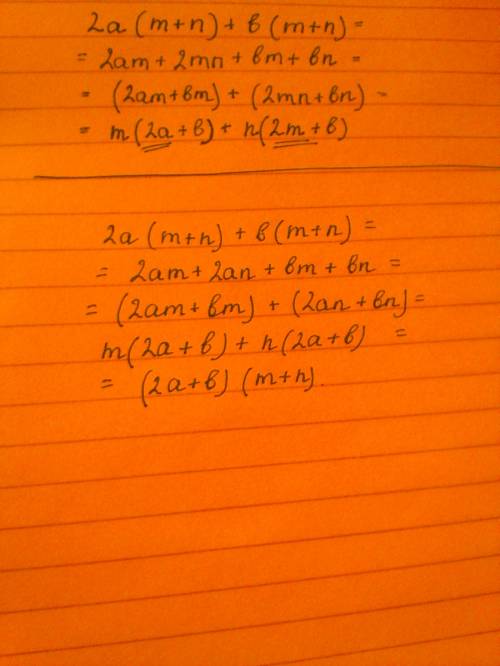 2a (m+n) + в (m+n) =
= 2am + 2mn + вm + вn =
= (2am+вm) + (2mn+вn) -
= m(2a+в) + n(2m+в)
2a (m+n) + в (m+n) =
= 2am + 2an + вm + вn =
= (2am + вm) + (2an + вn) =
m(2a+в) + n(2a+в) =
= (2a+в) (m+n).